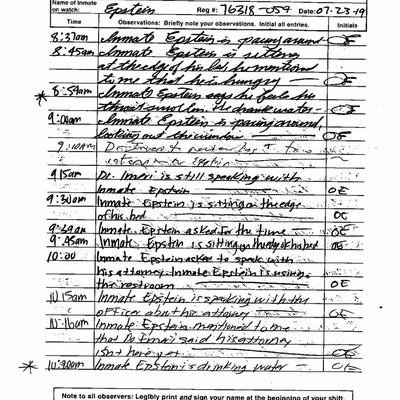 Name of Inmate on watch: Epstein Reg #: 76318-054 Date: 07-23-19
Time Observations: Briefly note your observations. Initial all entries. Initials
8:37am Inmate Epstein is pacing around OE
8:45am Inmate Epstein is sitting
at the edge of his bed he mentioned
to me that he is hungry OE
* 8:54am Inmate Epstein says he feels his
throat swollen. He drank water
9:00am Inmate Epstein is pacing around,
looking out the window OE
9:10am Dr.
Epstein
9:15am Dr. Imeri is still speaking with
Inmate Epstein OE
9:30am Inmate Epstein is sitting on the edge
of his bed OE
Inmate Epstein asked for the time OE
9:45am Inmate Epstein is sitting on the edge of his bed OE
10:00 Inmate Epstein asked to speak with
his attorney. Inmate Epstein is using
the restroom OE
10:15am Inmate Epstein is speaking with the
officer about his attorney OE
10:16am Inmate Epstein mentioned to me
that Dr. Imeri said his attorney
isn't here yet OE
* Inmate Epstein is drinking water OE
Note to all observers: Legibly print and sign your name at the beginning of your shift.